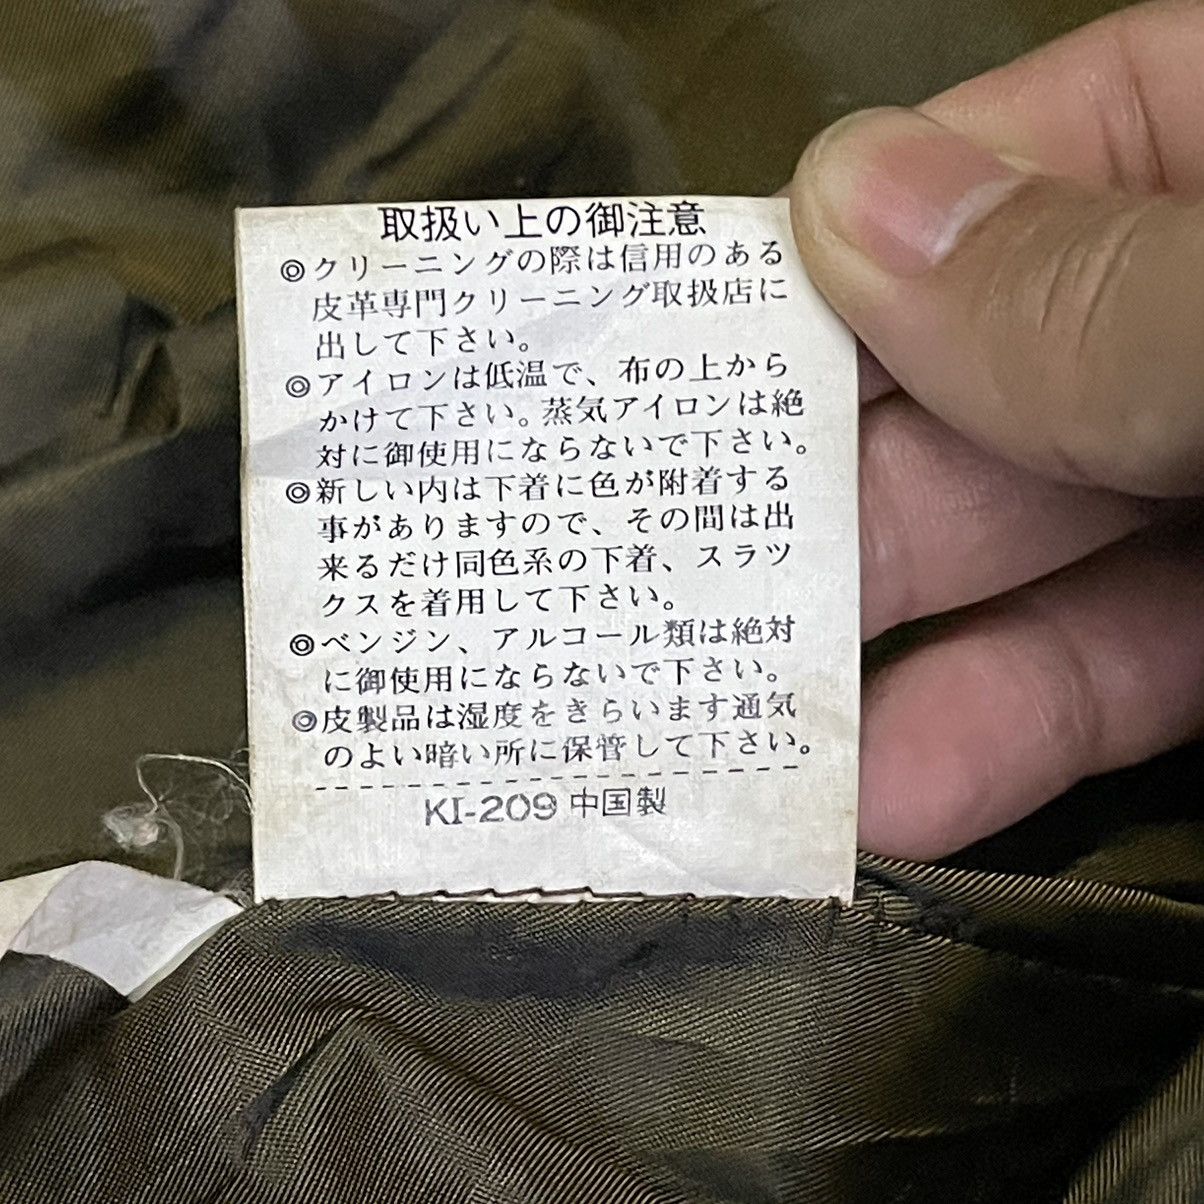 取扱い上の御注意
◎クリーニングの際は信用のある
皮革専門クリーニング取扱店に
出して下さい。
◎アイロンは低温で、布の上から
かけて下さい。蒸気アイロンは絶
対に御使用にならないで下さい。
◎新しい内は下着に色が附着する
事がありますので、その間は出
来るだけ同色系の下着、スラツ
クスを着用して下さい。
◎ベンジン、アルコール類は絶対
に御使用にならないで下さい。
◎皮製品は湿度をきらいます通気
のよい暗い所に保管して下さい。
KI-209 中国製